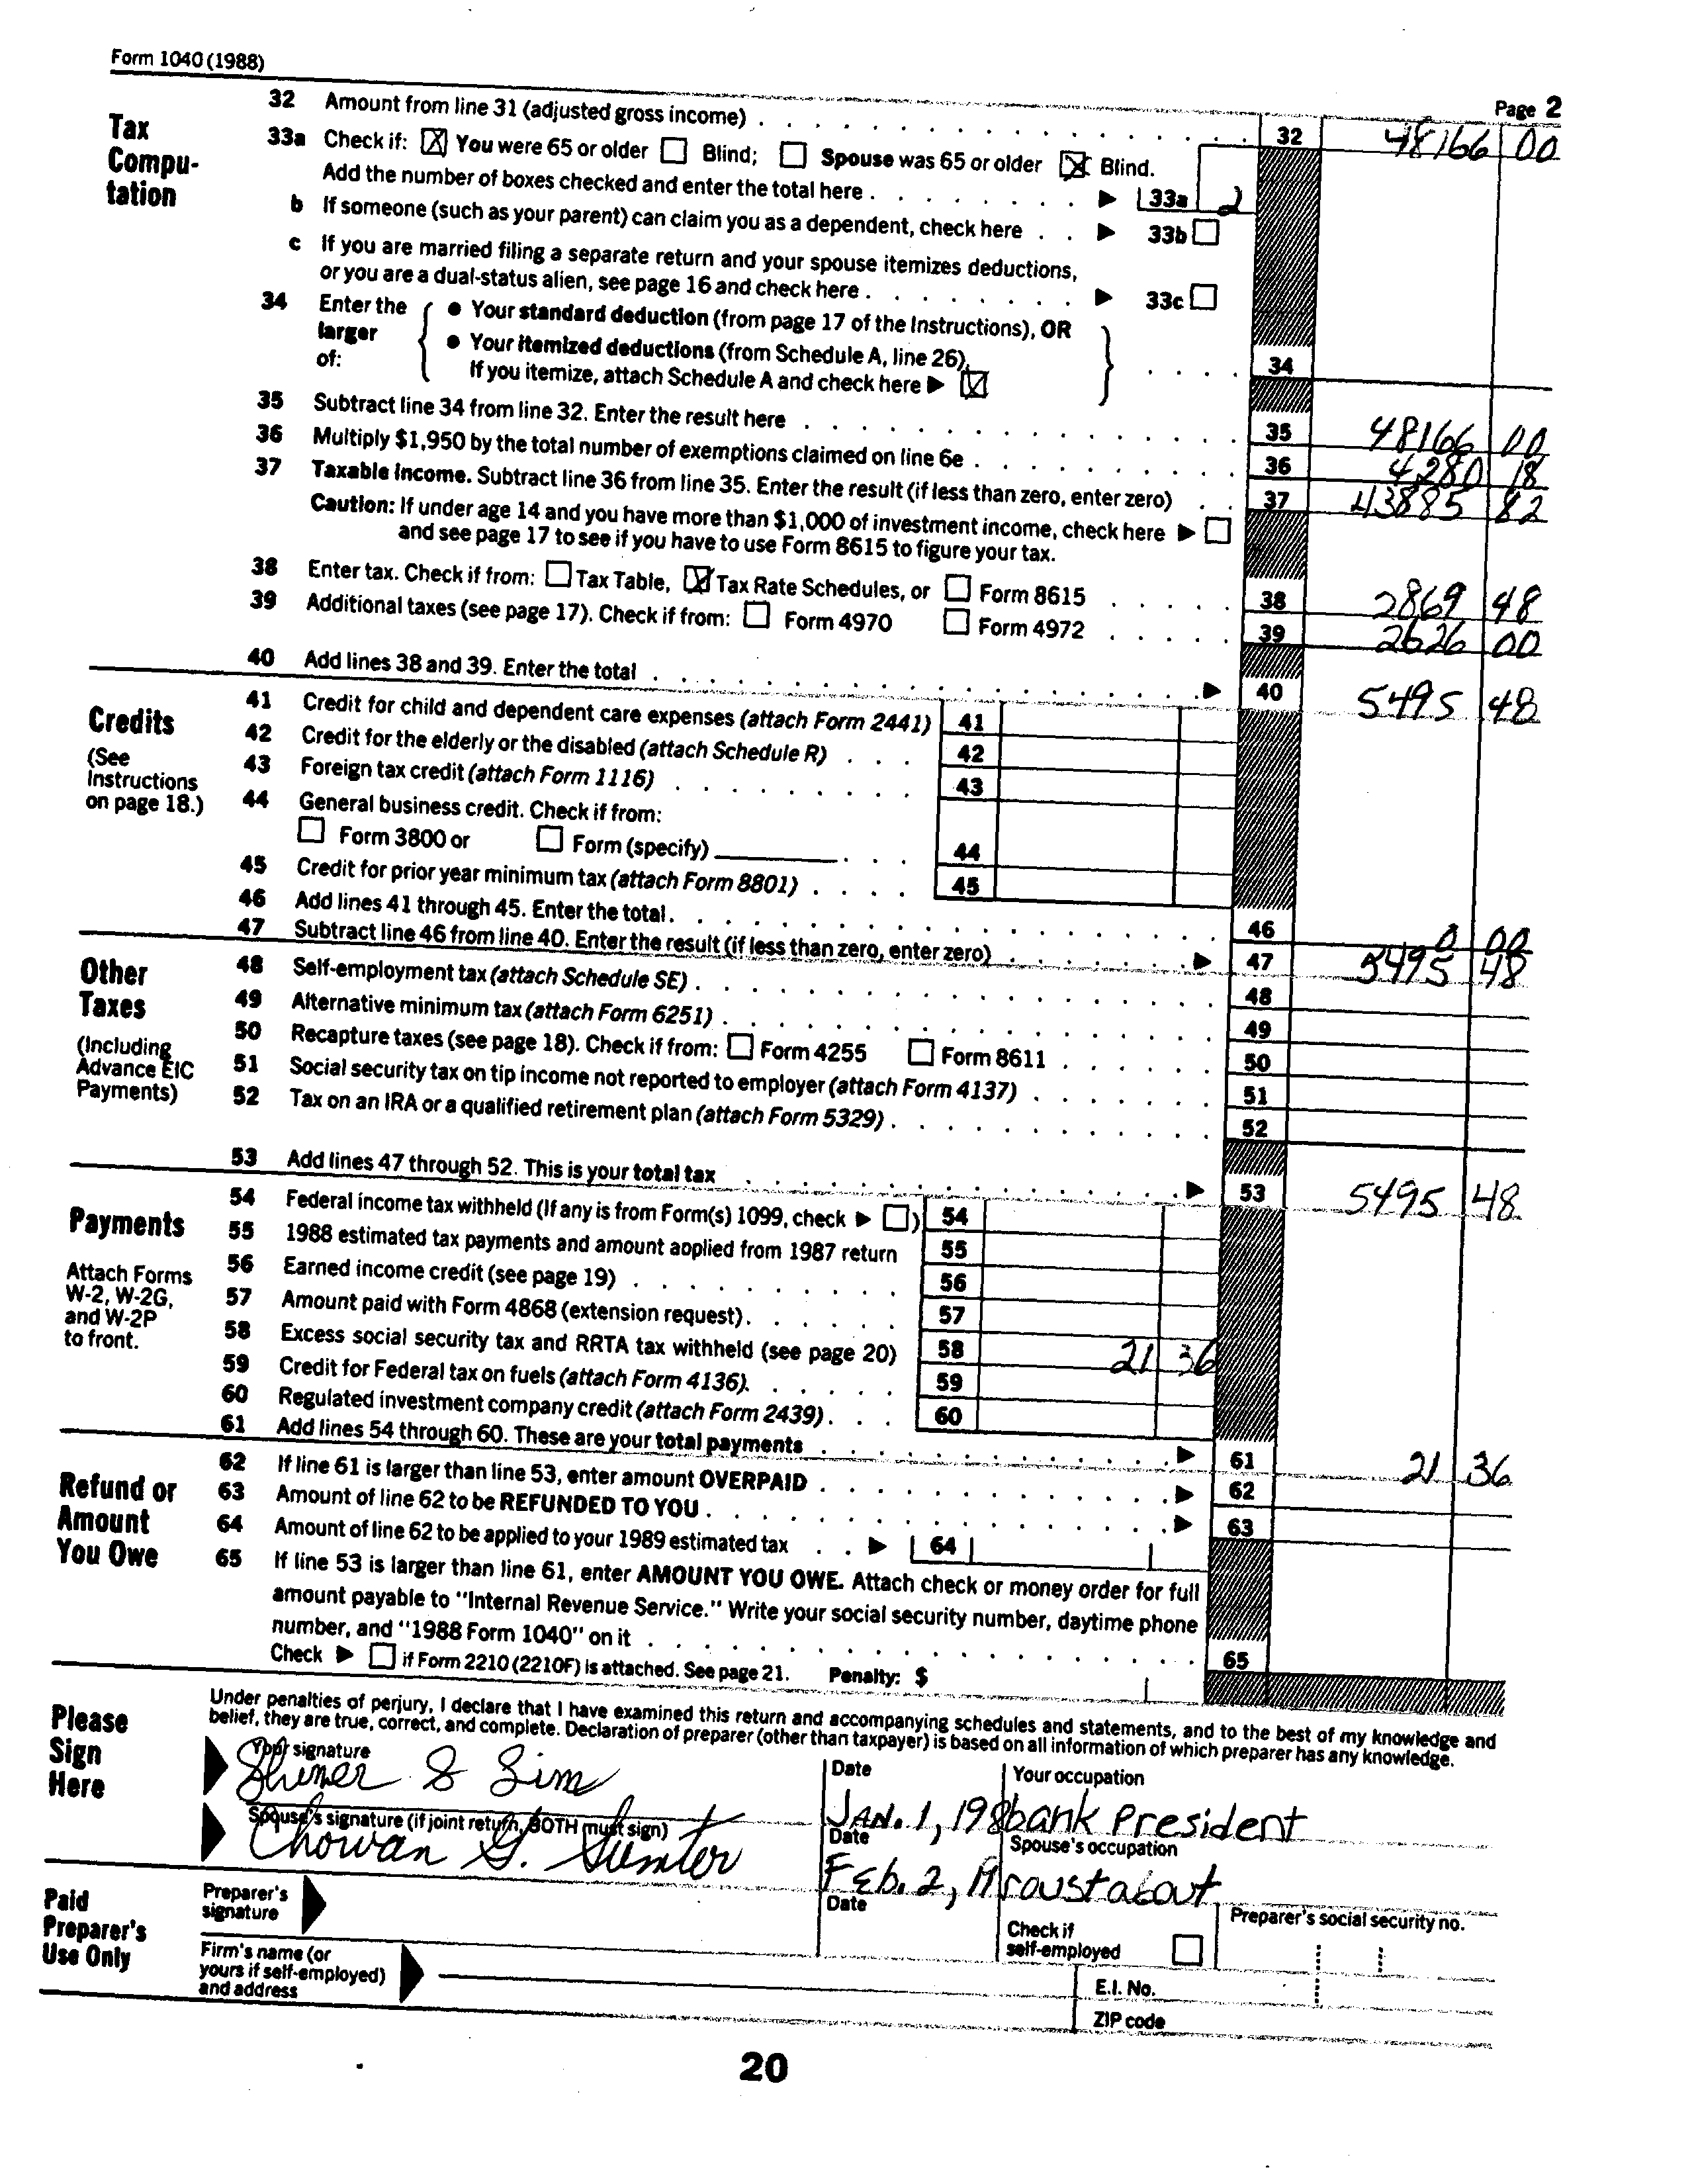 Form 1040 (1988)
Page 2
Tax Computation
32 Amount from line 31 (adjusted gross income) 32 48166 00
33a Check if: [X] You were 65 or older [ ] Blind; [ ] Spouse was 65 or older [X] Blind.
Add the number of boxes checked and enter the total here ▶ 33a 2
b If someone (such as your parent) can claim you as a dependent, check here ▶ 33b [ ]
c If you are married filing a separate return and your spouse itemizes deductions,
or you are a dual-status alien, see page 16 and check here ▶ 33c [ ]
34 Enter the larger of: { ● Your standard deduction (from page 17 of the Instructions), OR
● Your itemized deductions (from Schedule A, line 26).
If you itemize, attach Schedule A and check here ▶ [X] } 34
35 Subtract line 34 from line 32. Enter the result here 35 48166 00
36 Multiply $1,950 by the total number of exemptions claimed on line 6e 36 4280 18
37 Taxable income. Subtract line 36 from line 35. Enter the result (if less than zero, enter zero) 37 43885 82
Caution: If under age 14 and you have more than $1,000 of investment income, check here ▶ [ ]
and see page 17 to see if you have to use Form 8615 to figure your tax.
38 Enter tax. Check if from: [ ] Tax Table, [X] Tax Rate Schedules, or [ ] Form 8615 38 2869 48
39 Additional taxes (see page 17). Check if from: [ ] Form 4970 [ ] Form 4972 39 2626 00
40 Add lines 38 and 39. Enter the total ▶ 40 5495 48
Credits
(See Instructions on page 18.)
41 Credit for child and dependent care expenses (attach Form 2441) 41
42 Credit for the elderly or the disabled (attach Schedule R) 42
43 Foreign tax credit (attach Form 1116) 43
44 General business credit. Check if from:
[ ] Form 3800 or [ ] Form (specify) 44
45 Credit for prior year minimum tax (attach Form 8801) 45
46 Add lines 41 through 45. Enter the total 46 0 00
47 Subtract line 46 from line 40. Enter the result (if less than zero, enter zero) ▶ 47 5495 48
Other Taxes
(Including Advance EIC Payments)
48 Self-employment tax (attach Schedule SE) 48
49 Alternative minimum tax (attach Form 6251) 49
50 Recapture taxes (see page 18). Check if from: [ ] Form 4255 [ ] Form 8611 50
51 Social security tax on tip income not reported to employer (attach Form 4137) 51
52 Tax on an IRA or a qualified retirement plan (attach Form 5329) 52
53 Add lines 47 through 52. This is your total tax ▶ 53 5495 48
Payments
Attach Forms W-2, W-2G, and W-2P to front.
54 Federal income tax withheld (If any is from Form(s) 1099, check ▶ [ ]) 54
55 1988 estimated tax payments and amount applied from 1987 return 55
56 Earned income credit (see page 19) 56
57 Amount paid with Form 4868 (extension request) 57
58 Excess social security tax and RRTA tax withheld (see page 20) 58 21 36
59 Credit for Federal tax on fuels (attach Form 4136) 59
60 Regulated investment company credit (attach Form 2439) 60
61 Add lines 54 through 60. These are your total payments ▶ 61 21 36
Refund or Amount You Owe
62 If line 61 is larger than line 53, enter amount OVERPAID ▶ 62
63 Amount of line 62 to be REFUNDED TO YOU ▶ 63
64 Amount of line 62 to be applied to your 1989 estimated tax ▶ 64
65 If line 53 is larger than line 61, enter AMOUNT YOU OWE. Attach check or money order for full
amount payable to "Internal Revenue Service." Write your social security number, daytime phone
number, and "1988 Form 1040" on it 65
Check ▶ [ ] if Form 2210 (2210F) is attached. See page 21. Penalty: $
Please Sign Here
Under penalties of perjury, I declare that I have examined this return and accompanying schedules and statements, and to the best of my knowledge and
belief, they are true, correct, and complete. Declaration of preparer (other than taxpayer) is based on all information of which preparer has any knowledge.
Your signature Date Your occupation
JAN. 1, 198 bank President
Spouse's signature (if joint return, BOTH must sign) Date Spouse's occupation
Chowan G. Sumter Feb. 2, roustabout
Paid Preparer's Use Only
Preparer's signature Date Check if self-employed [ ] Preparer's social security no.
Firm's name (or yours if self-employed) and address
E.I. No.
ZIP code
20